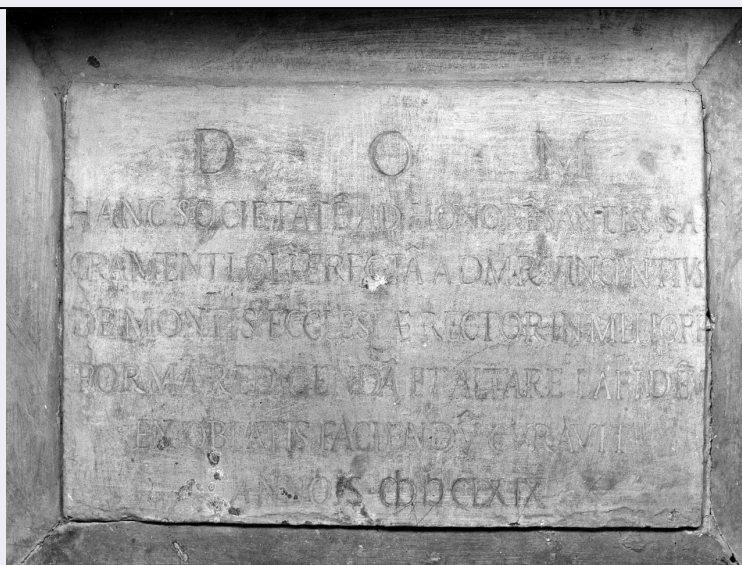 D O M
HANC SOCIETATĒ AD HONORĒ SANTISS SA
CRAMENTI OLĪ ERECTĀ ADM R VINCENTIVS
DE MONTIS ECCLESIÆ RECTOR IN MELIORĒ
FORMĀ REDIGENDĀ ET ALTARE LAPIDĒ
EX OBLATIS FACIENDV̄ CVRAVIT